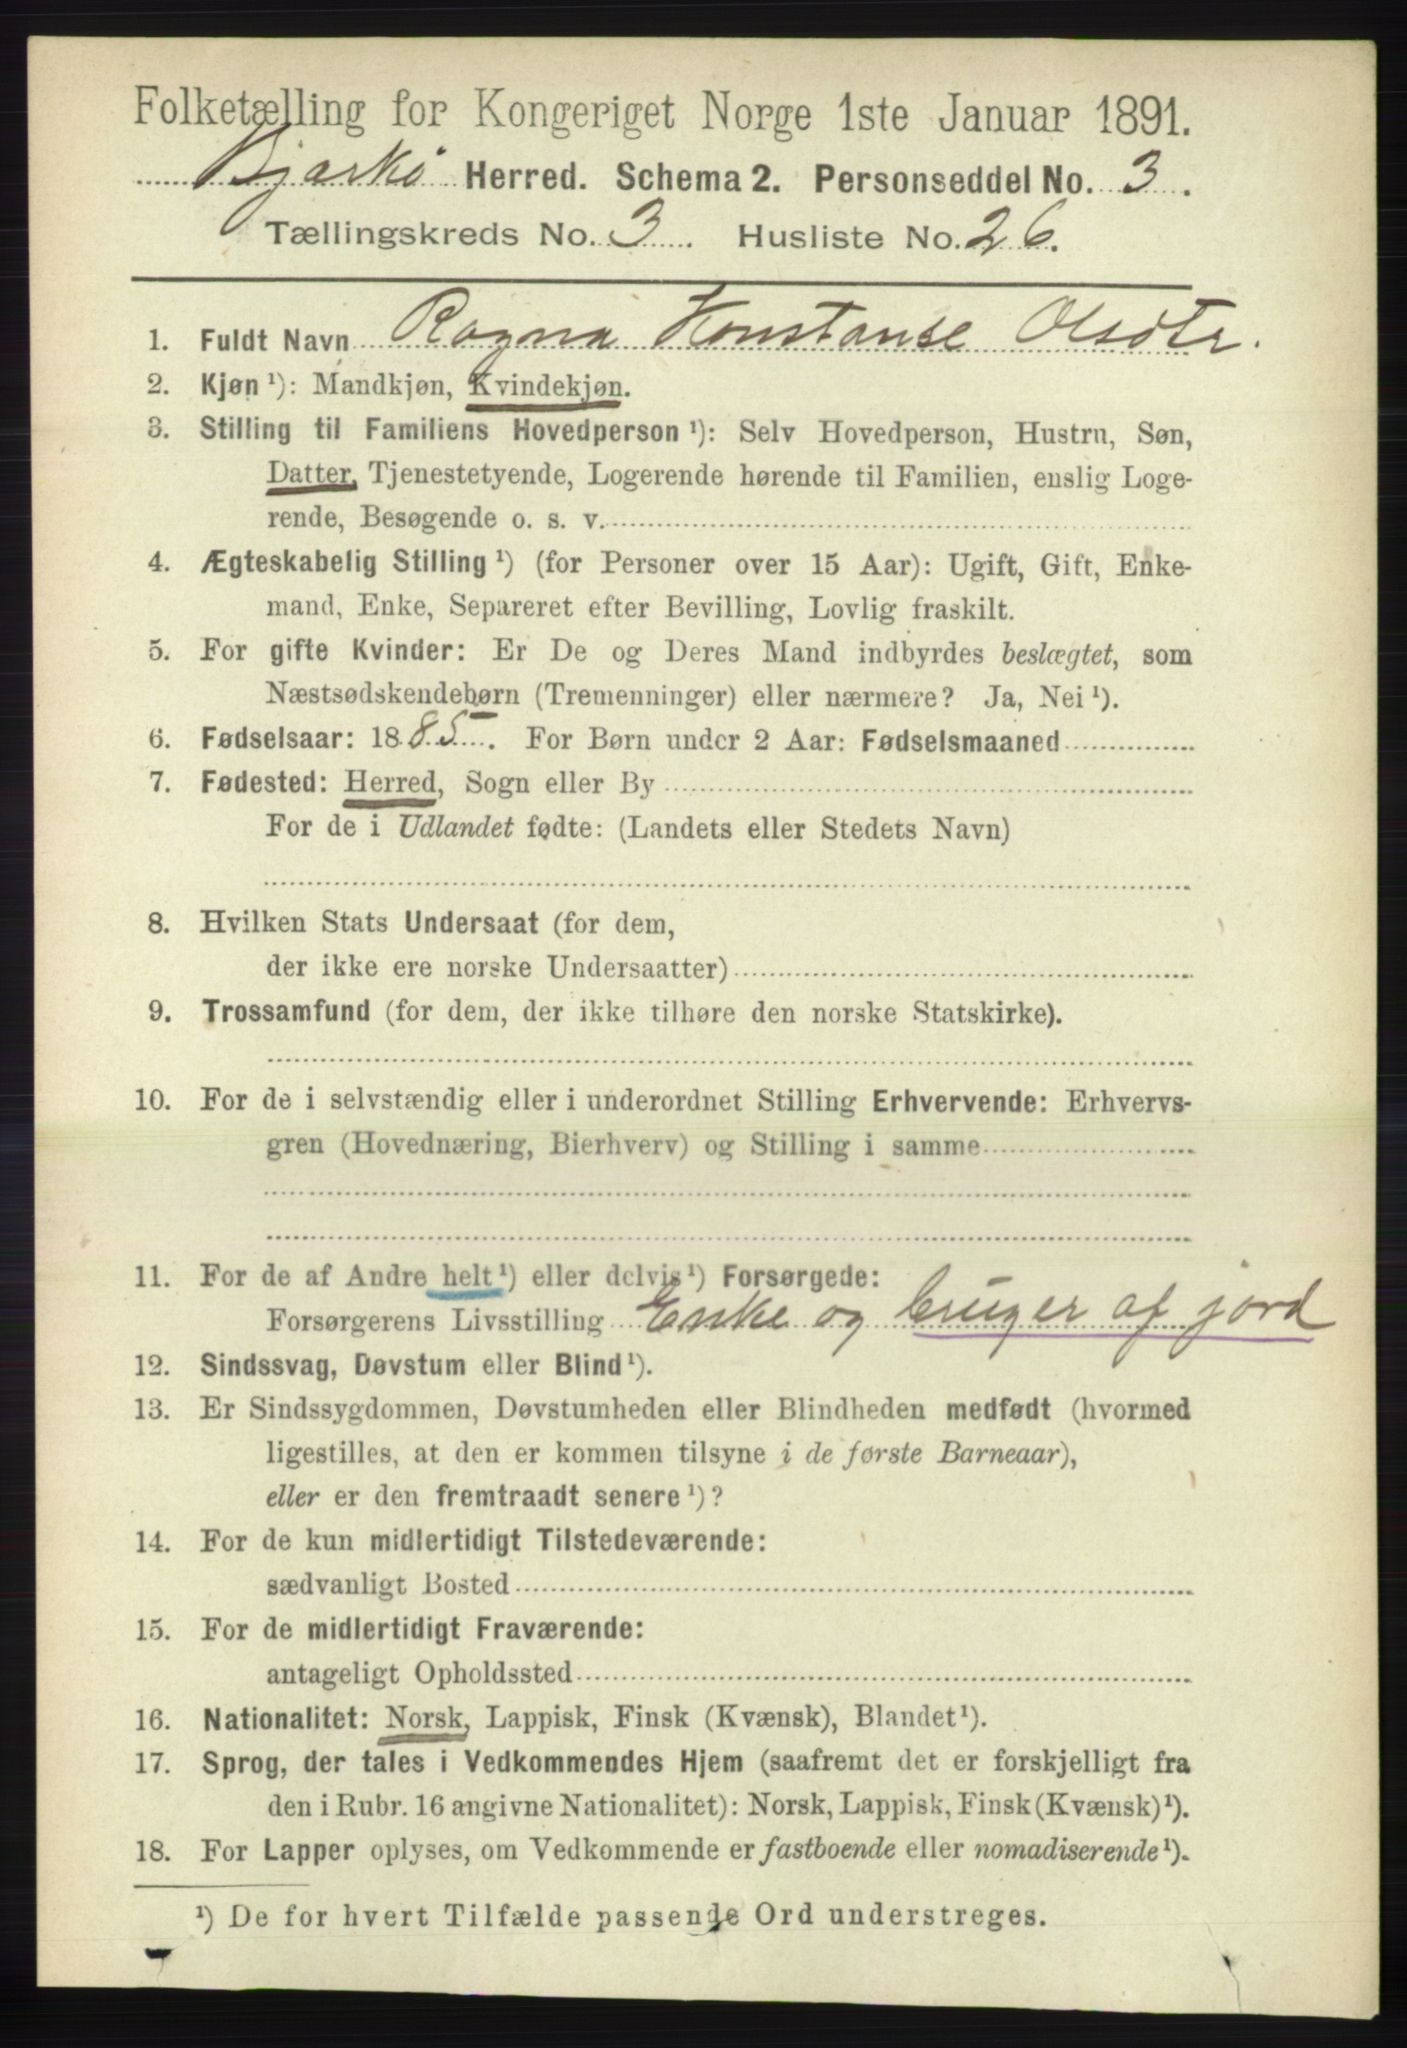 Folketælling for Kongeriget Norge 1ste Januar 1891.
Bjarkø Herred. Schema 2. Personseddel No. 3.
Tællingskreds No. 3. Husliste No. 26.
1. Fuldt Navn Ragna Konstanse Olsdtr.
2. Kjøn ¹): Mandkjøn, Kvindekjøn.
3. Stilling til Familiens Hovedperson ¹): Selv Hovedperson, Hustru, Søn,
Datter, Tjenestetyende, Logerende hørende til Familien, enslig Loge-
rende, Besøgende o. s. v.
4. Ægteskabelig Stilling ¹) (for Personer over 15 Aar): Ugift, Gift, Enke-
mand, Enke, Separeret efter Bevilling, Lovlig fraskilt.
5. For gifte Kvinder: Er De og Deres Mand indbyrdes beslægtet, som
Næstsødskendebørn (Tremenninger) eller nærmere? Ja, Nei ¹).
6. Fødselsaar: 1885. For Børn under 2 Aar: Fødselsmaaned
7. Fødested: Herred, Sogn eller By
For de i Udlandet fødte: (Landets eller Stedets Navn)
8. Hvilken Stats Undersaat (for dem,
der ikke ere norske Undersaatter)
9. Trossamfund (for dem, der ikke tilhøre den norske Statskirke).
10. For de i selvstændig eller i underordnet Stilling Erhvervende: Erhvervs-
gren (Hovednæring, Bierhverv) og Stilling i samme
11. For de af Andre helt ¹) eller delvis ¹) Forsørgede:
Forsørgerens Livsstilling Enke og bruger af jord
12. Sindssvag, Døvstum eller Blind ¹).
13. Er Sindssygdommen, Døvstumheden eller Blindheden medfødt (hvormed
ligestilles, at den er kommen tilsyne i de første Barneaar),
eller er den fremtraadt senere ¹)?
14. For de kun midlertidigt Tilstedeværende:
sædvanligt Bosted
15. For de midlertidigt Fraværende:
antageligt Opholdssted
16. Nationalitet: Norsk, Lappisk, Finsk (Kvænsk), Blandet ¹).
17. Sprog, der tales i Vedkommendes Hjem (saafremt det er forskjelligt fra
den i Rubr. 16 angivne Nationalitet): Norsk, Lappisk, Finsk (Kvænsk) ¹).
18. For Lapper oplyses, om Vedkommende er fastboende eller nomadiserende ¹).
¹) De for hvert Tilfælde passende Ord understreges.